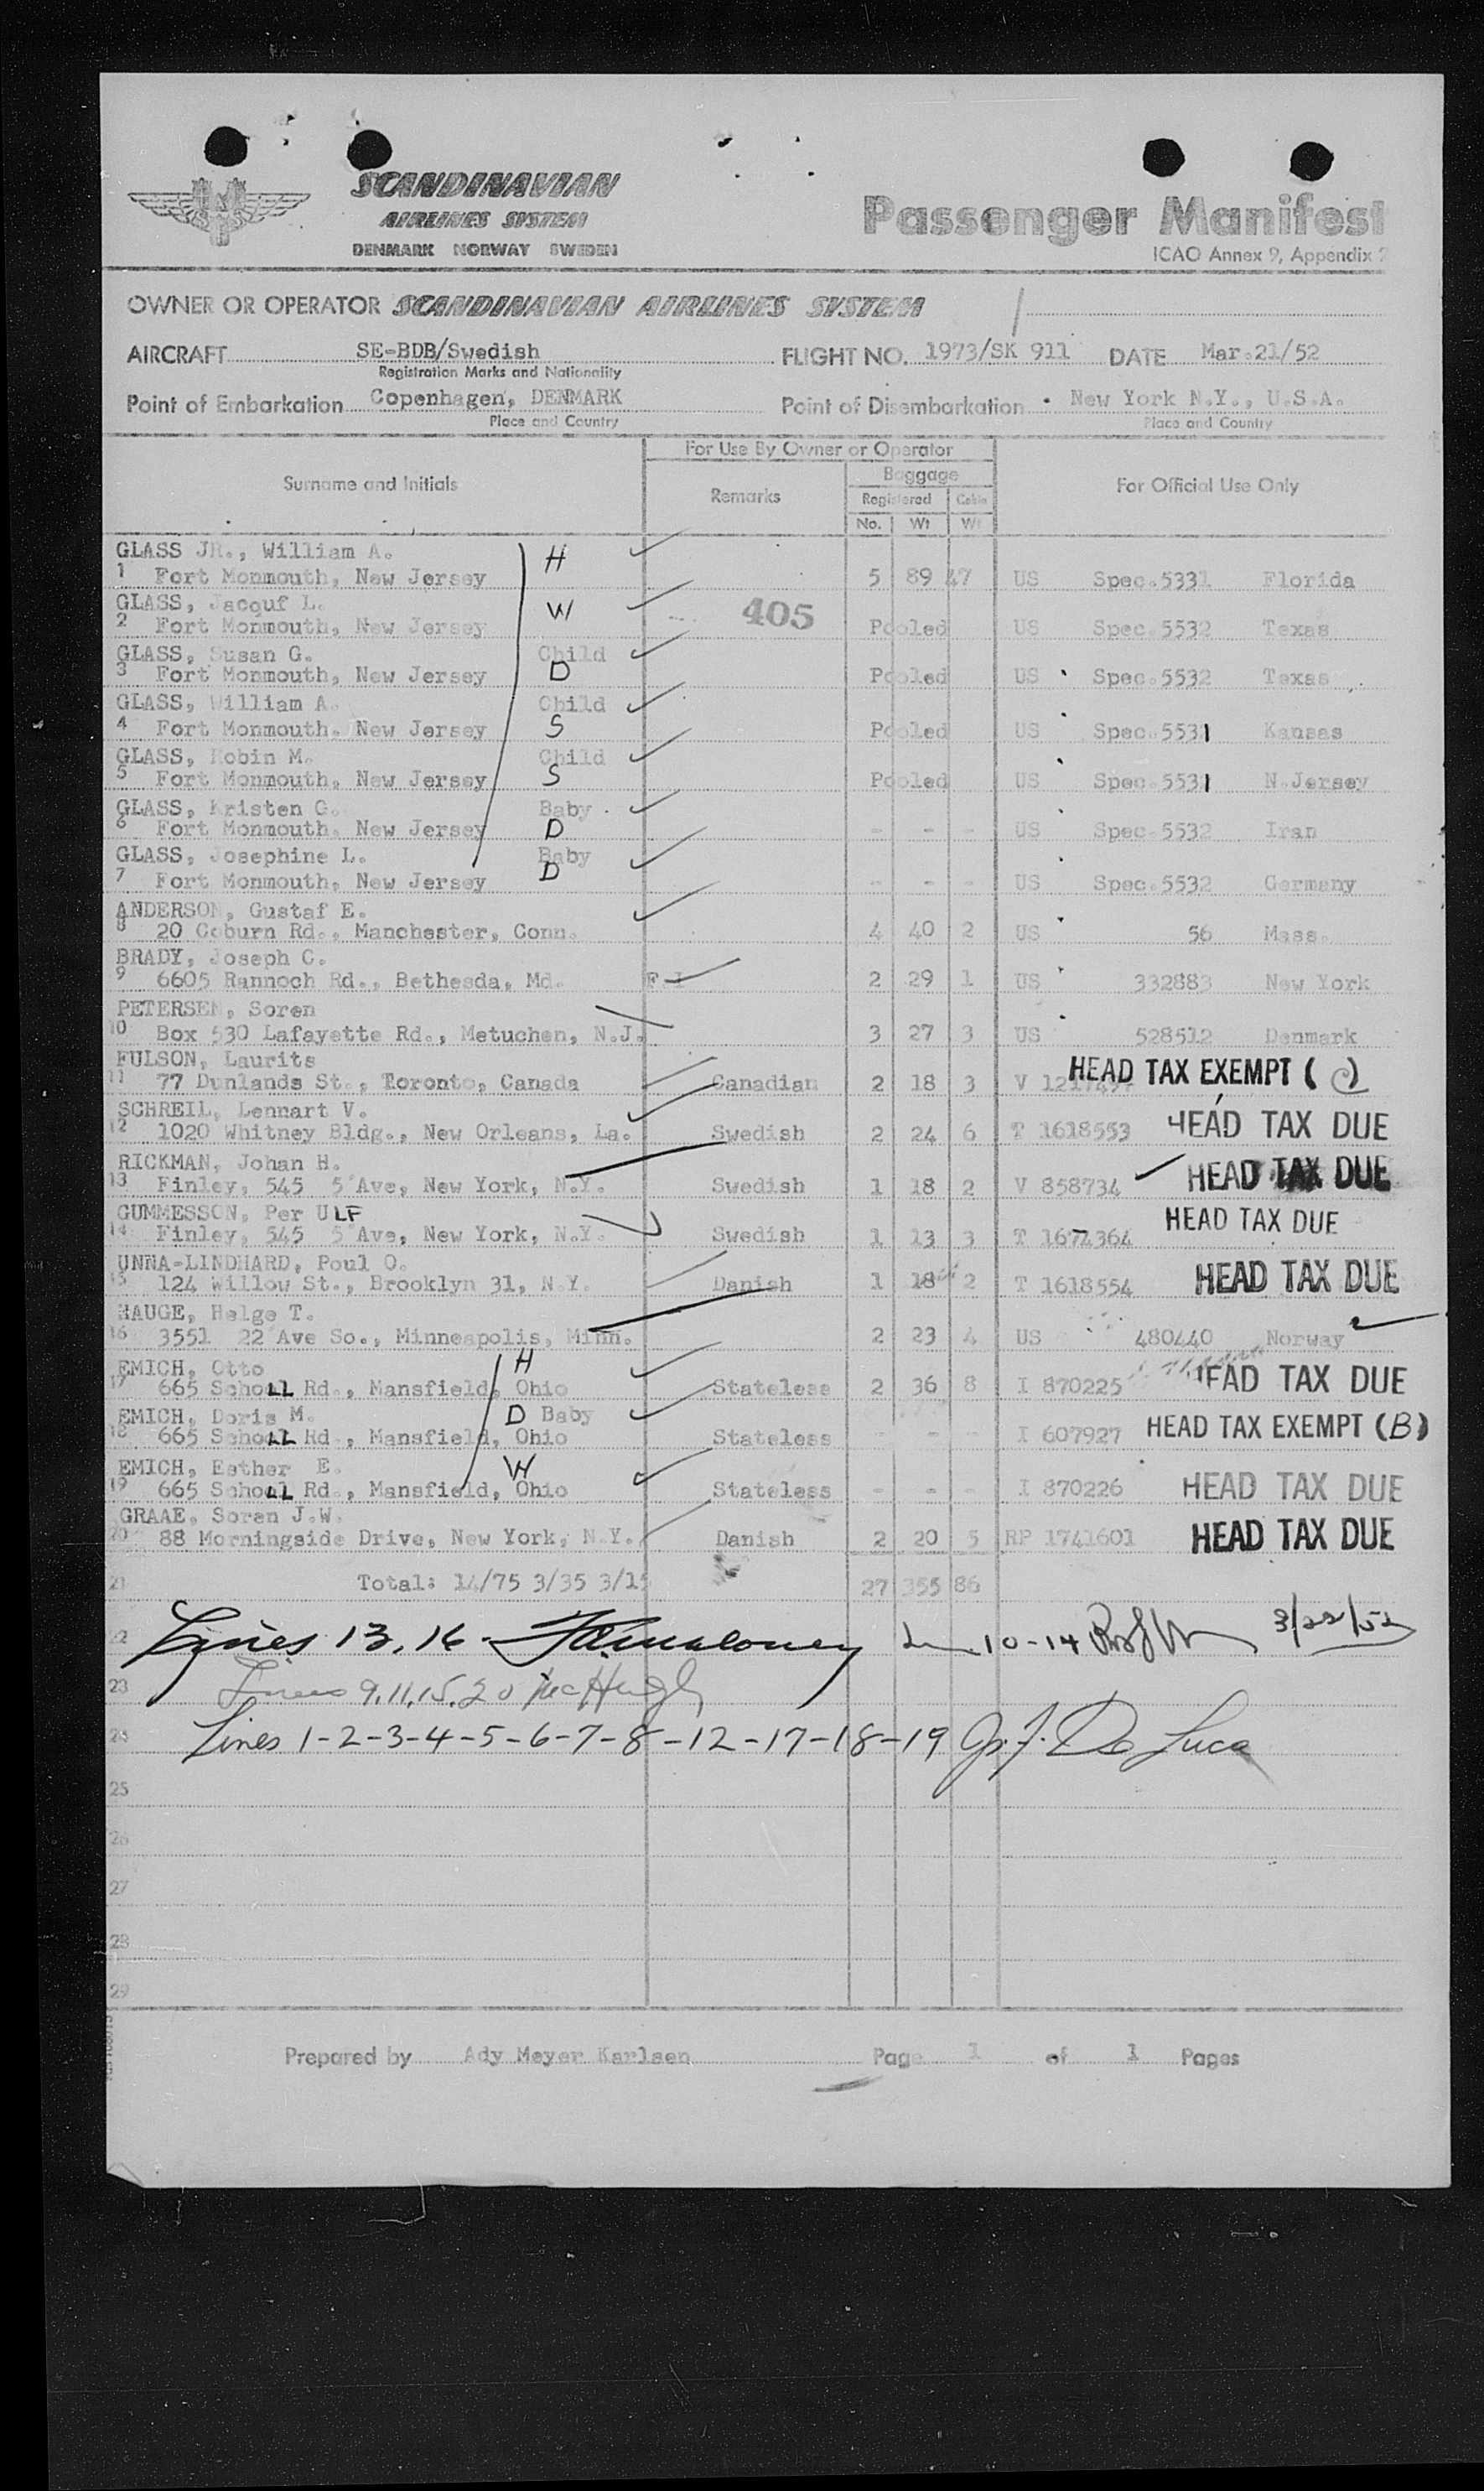 SCANDINAVIAN
AIRLINES SYSTEM
DENMARK NORWAY SWEDEN
Passenger Manifest
ICAO Annex 9, Appendix 2
OWNER OR OPERATOR SCANDINAVIAN AIRLINES SYSTEM
AIRCRAFT SE-BDB/Swedish FLIGHT NO. 1973/SK 911 DATE Mar.21/52
Registration Marks and Nationality
Point of Embarkation Copenhagen, DENMARK Point of Disembarkation New York N.Y., U.S.A.
Place and Country Place and Country
For Use By Owner or Operator
Surname and Initials Remarks Baggage For Official Use Only
Registered Cabin
No. Wt Wt
GLASS JR., William A. H
1 Fort Monmouth, New Jersey 5 89 47 US Spec.5331 Florida
GLASS, Jacquf L. W 405
2 Fort Monmouth, New Jersey Pooled US Spec.5532 Texas
GLASS, Susan G. Child
3 Fort Monmouth, New Jersey D Pooled US Spec.5532 Texas
GLASS, William A. Child
4 Fort Monmouth, New Jersey S Pooled US Spec.5531 Kansas
GLASS, Robin M. Child
5 Fort Monmouth, New Jersey S Pooled US Spec.5531 N.Jersey
GLASS, Kristen G. Baby
6 Fort Monmouth, New Jersey D - - - US Spec.5532 Iran
GLASS, Josephine L. Baby
7 Fort Monmouth, New Jersey D - - - US Spec.5532 Germany
ANDERSON, Gustaf E.
8 20 Coburn Rd., Manchester, Conn. 4 40 2 US 56 Mass.
BRADY, Joseph C.
9 6605 Rannoch Rd., Bethesda, Md. F I 2 29 1 US 332883 New York
PETERSEN, Soren
10 Box 530 Lafayette Rd., Metuchen, N.J. 3 27 3 US 528512 Denmark
FULSON, Laurits HEAD TAX EXEMPT (C)
11 77 Dunlands St., Toronto, Canada Canadian 2 18 3 V
SCHREIL, Lennart V.
12 1020 Whitney Bldg., New Orleans, La. Swedish 2 24 6 T 1618553 HEAD TAX DUE
RICKMAN, Johan H.
13 Finley, 545 5 Ave, New York, N.Y. Swedish 1 18 2 V 858734 HEAD TAX DUE
GUMMESSON, Per ULF HEAD TAX DUE
14 Finley, 545 5 Ave, New York, N.Y. Swedish 1 13 3 T 1671364
UNNA-LINDHARD, Poul O.
15 124 Willow St., Brooklyn 31, N.Y. Danish 1 18 2 T 1618554 HEAD TAX DUE
HAUGE, Helge T.
16 3551 22 Ave So., Minneapolis, Minn. 2 23 4 US 480440 Norway
EMICH, Otto H
17 665 SchoLL Rd., Mansfield, Ohio Stateless 2 36 8 I 870225 HEAD TAX DUE
EMICH, Doris M. D Baby
18 665 SchoLL Rd., Mansfield, Ohio Stateless - - - I 607927 HEAD TAX EXEMPT (B)
EMICH, Esther E. W
19 665 SchoLL Rd., Mansfield, Ohio Stateless - - - I 870226 HEAD TAX DUE
GRAAE, Soren J.W.
20 88 Morningside Drive, New York, N.Y. Danish 2 20 5 RP 1741601 HEAD TAX DUE
21 Total: 14/75 3/35 3/15 27 355 86
22 Lines 13, 16 10-14 3/22/52
23 Lines 9, 11, 15, 20 McHugh
24 Lines 1-2-3-4-5-6-7-8-12-17-18-19 De Luca
25
26
27
28
29
Prepared by Ady Meyer Karlsen Page 1 of 1 Pages